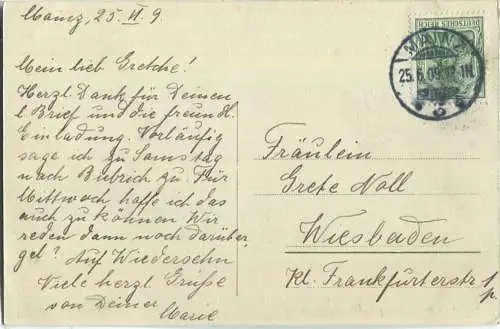 Mainz, 25. VI 9.
Mein lieb. Gretche!
Herzl. Dank für Deinen
l. Brief und die freundl.
Einladung. Vorläufig
sage ich zu Samstag
nach Biebrich zu. Für
Mittwoch hoffe ich das
auch zu können Wir
reden dann noch darüber,
gel? Auf Wiedersehn
Viele herzl. Grüße
von Deiner
Marie
DEUTSCHES REICH
MAINZ
25.6.09.
Fräulein
Grete Noll
Wiesbaden
Kl. Frankfurterstr 1
p.